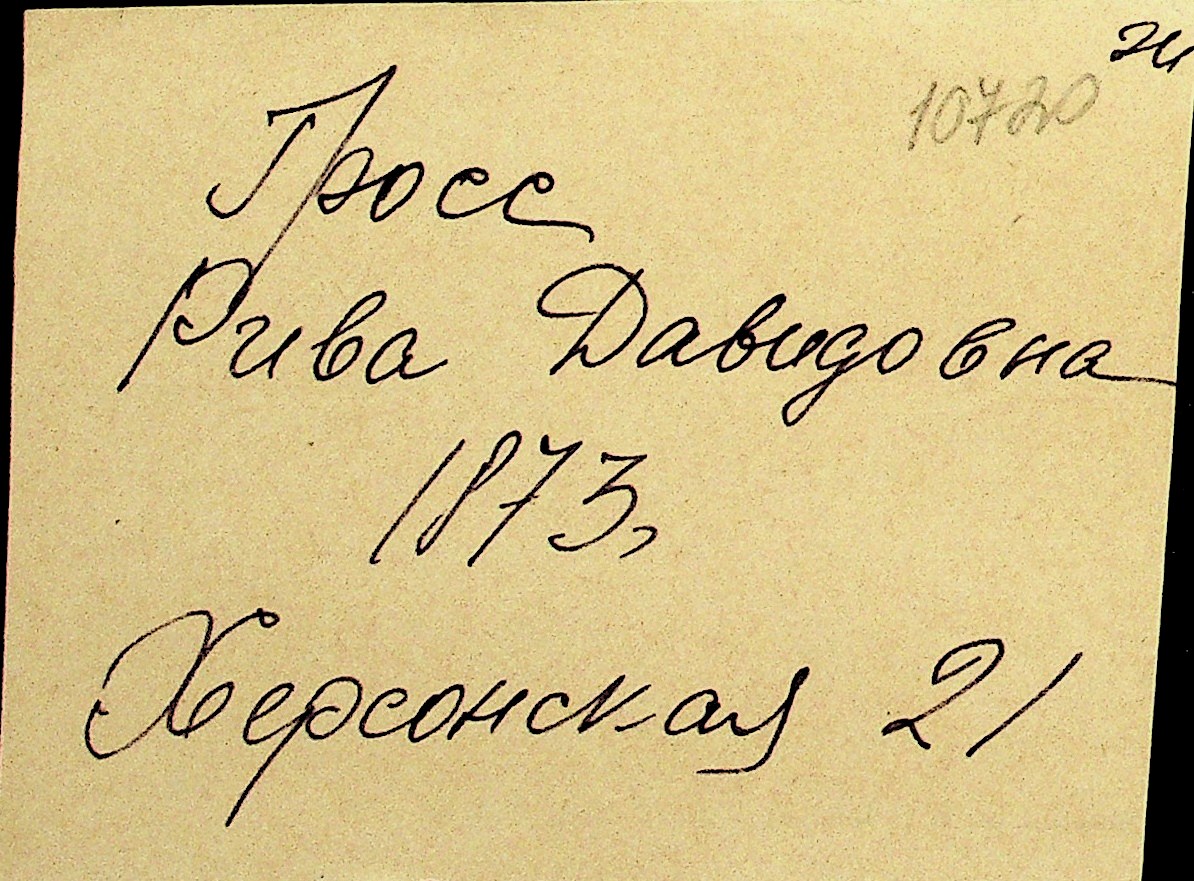 10720
Гросс
Рива Давидовна
1873,
Херсонская 21